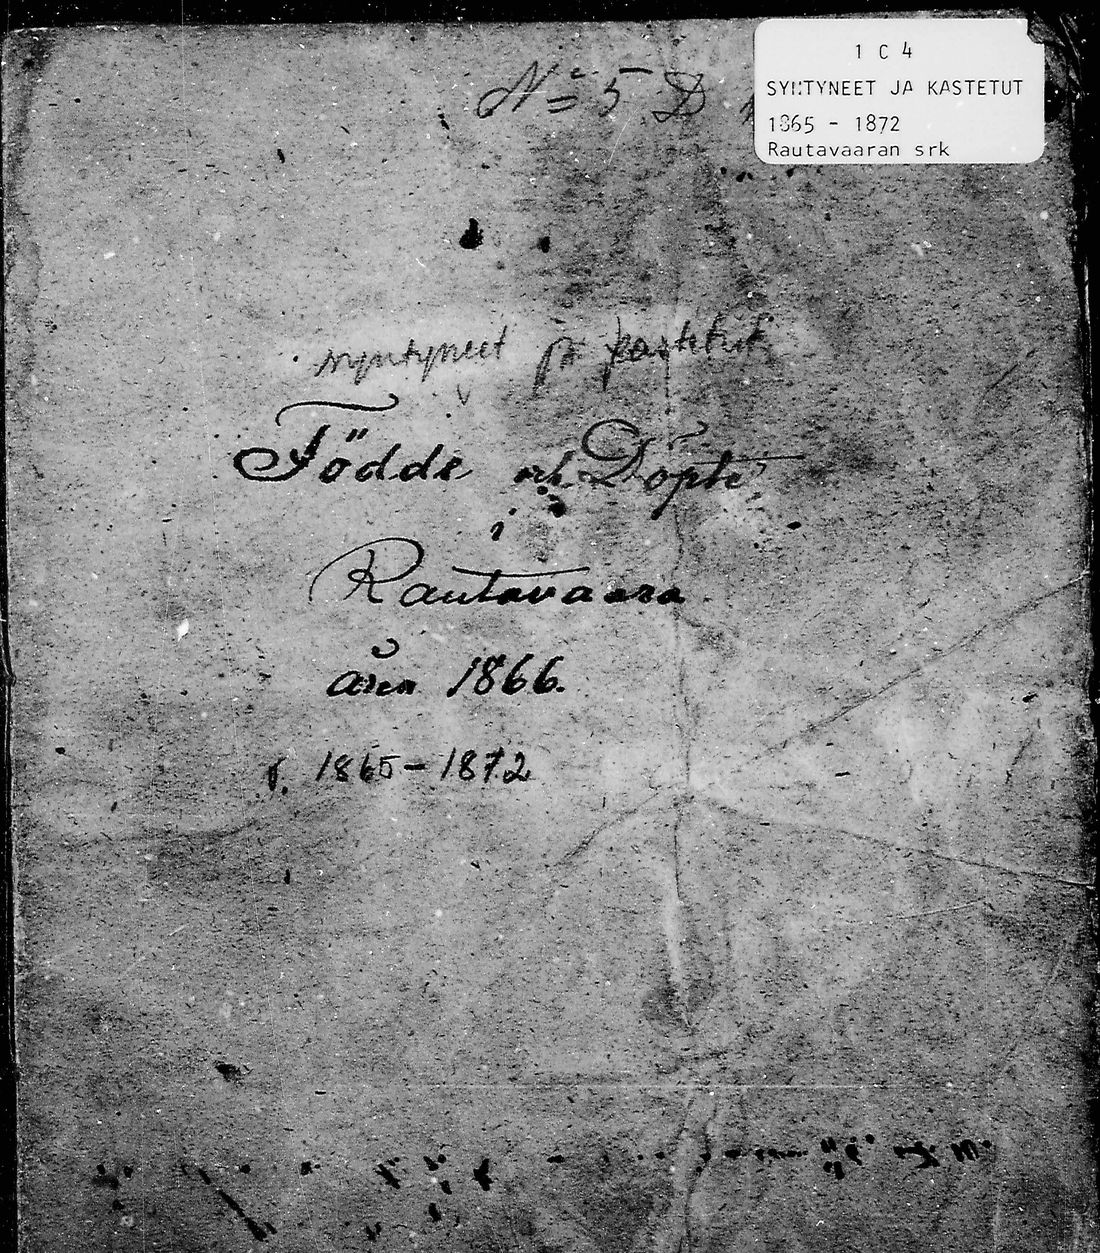 N<u>o</u> 5 D
1 C 4
SYNTYNEET JA KASTETUT
1865 - 1872
Rautavaaran srk
syntyneet ja kastetut
Födde och Döpte
i
Rautavaara
åren 1866.
v. 1865-1872